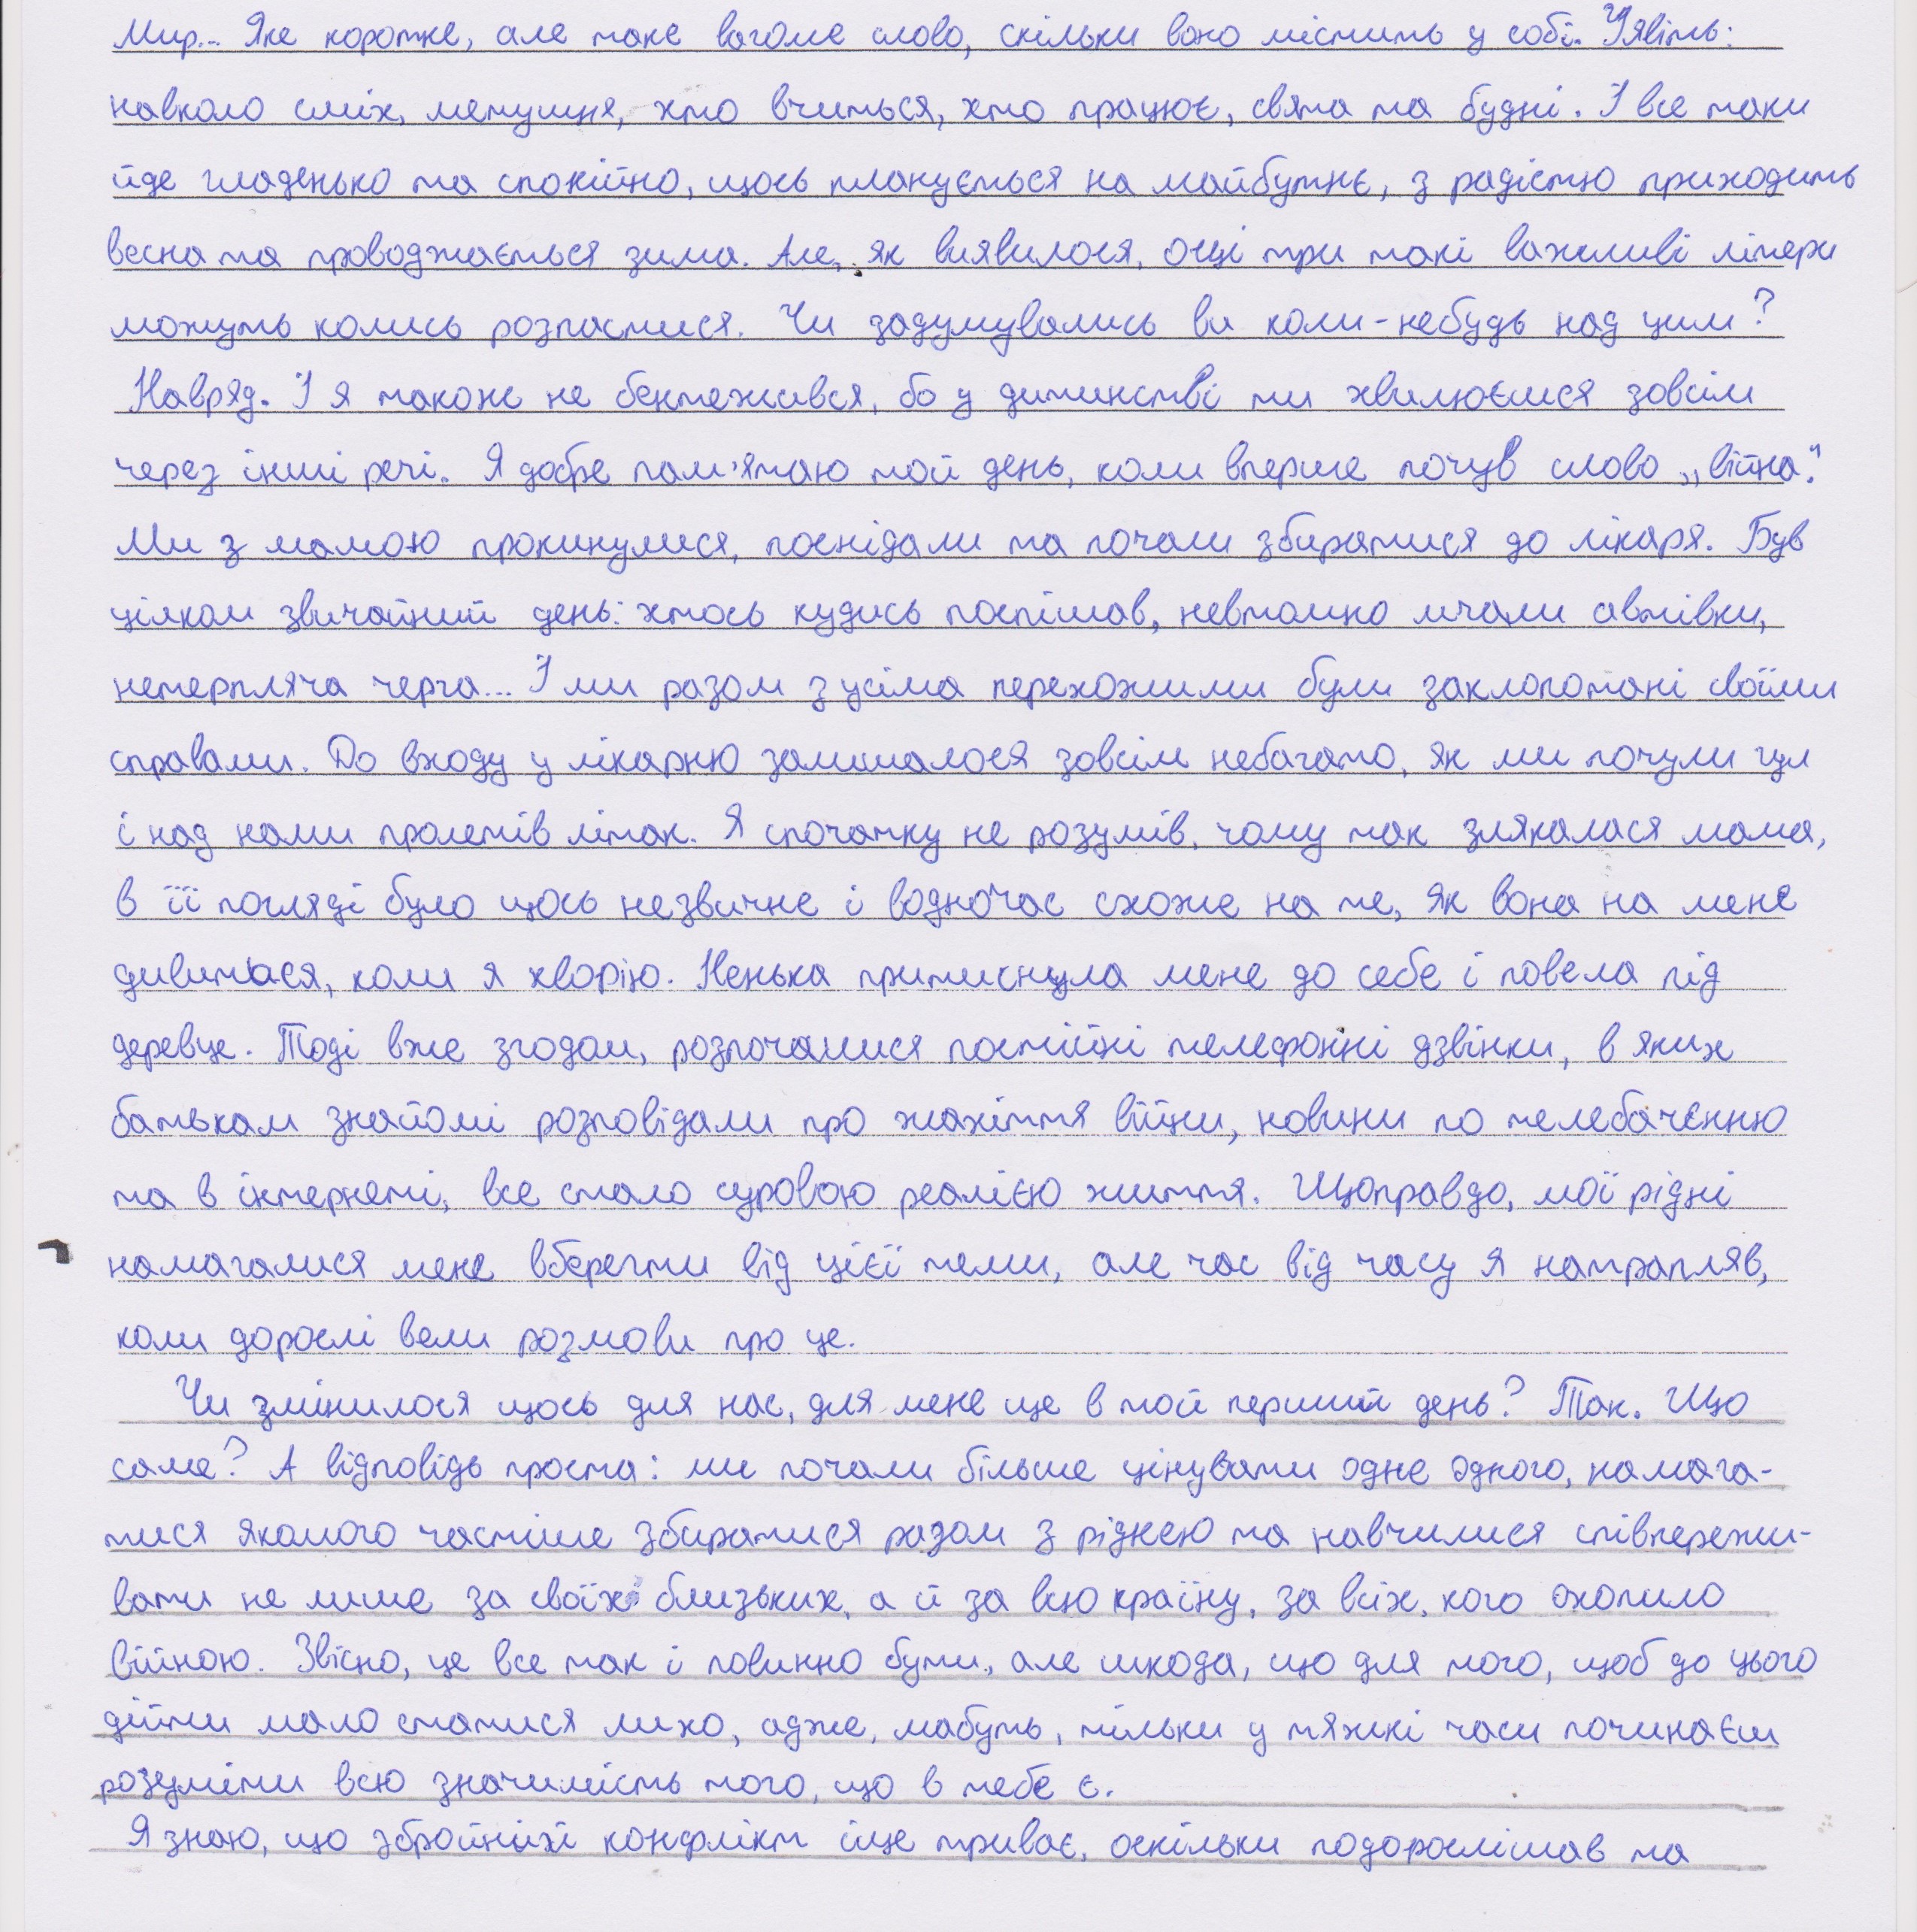 Мир... Яке коротке, але таке вагоме слово, скільки воно містить у собі. Уявіть:
навколо сміх, метушня, хто вчиться, хто працює, свята та будні. І все таки
йде гладенько та спокійно, щось планується на майбутнє, з радістю приходить
весна та проводжається зима. Але, як виявилося, оці три такі важливі літери
можуть колись розпастися. Чи задумувались ви коли-небудь над цим?
Навряд. І я також не бентежився, бо у дитинстві ми хвилюємися зовсім
через інші речі. Я добре пам'ятаю той день, коли вперше почув слово „війна".
Ми з мамою прокинулися, поснідали та почали збиратися до лікаря. Був
цілком звичайний день: хтось кудись поспішав, невтомно мчали автівки,
нетерпляча черга... І ми разом з усіма перехожими були заклопотані своїми
справами. До входу у лікарню залишалося зовсім небагато, як ми почули гул
і над нами пролетів літак. Я спочатку не розумів, чому так злякалася мама,
в її погляді було щось незвичне і водночас схоже на те, як вона на мене
дивилася, коли я хворію. Ненька притиснула мене до себе і повела під
деревце. Тоді вже згодом, розпочалися постійні телефонні дзвінки, в яких
батькам знайомі розповідали про жахіття війни, новини по телебаченню
та в інтернеті, все стало суровою реалією життя. Щоправда, мої рідні
намагалися мене вберегти від цієї теми, але час від часу я натрапляв,
коли дорослі вели розмови про це.
Чи змінилося щось для нас, для мене ще в той перший день? Так. Що
саме? А відповідь проста: ми почали більше цінувати одне одного, намага-
тися якомого частіше збиратися разом з ріднею та навчилися співпережи-
вати не лише за своїх близьких, а й за всю країну, за всіх, кого охопило
війною. Звісно, це все так і повинно бути, але шкода, що для того, щоб до цього
дійти мало статися лихо, адже, мабуть, тільки у тяжкі часи починаєш
розуміти всю значимість того, що в тебе є.
Я знаю, що збройний конфлікт іще триває, оскільки подорослішав та